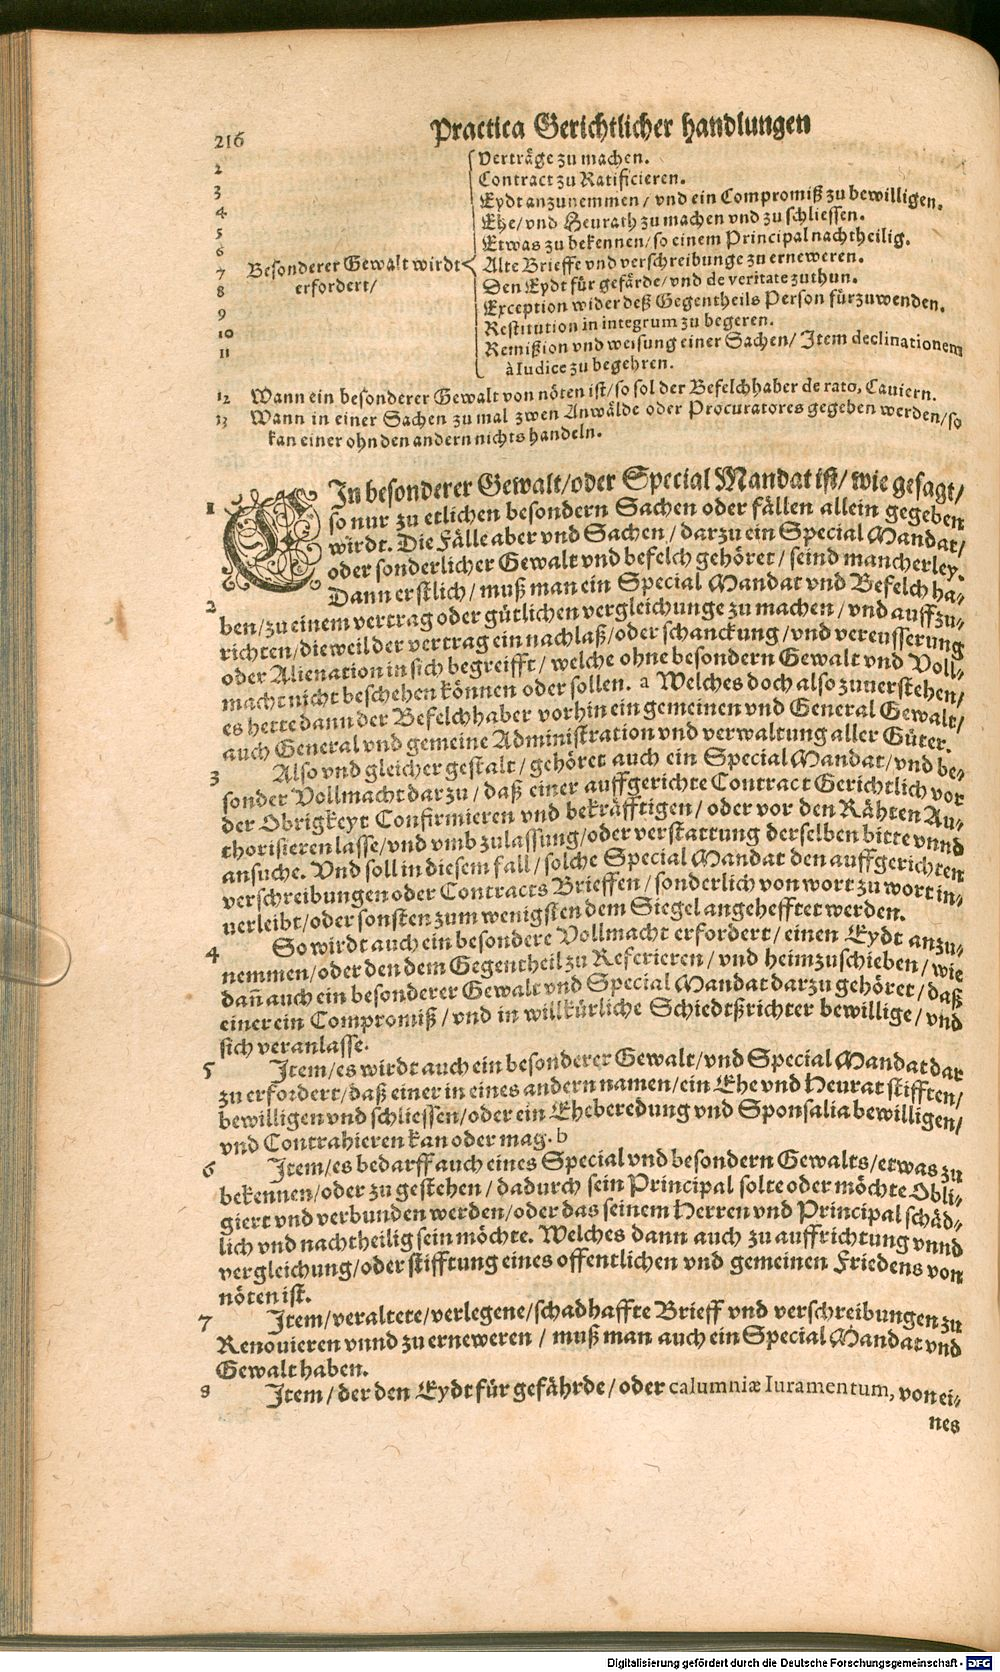 216 Practica Gerichtlicher handlungen
2 Verträge zu machen.
3 Contract zu Ratificieren.
4 Eydt anzunemmen / vnd ein Compromiß zu bewilligen.
5 Ehe / vnd Heurath zu machen vnd zu schliessen.
6 Etwas zu bekennen / so einem Principal nachtheilig.
7 Besonderer Gewalt wirdt Alte Brieffe vnd verschreibunge zu erneweren.
8 erfordert / Den Eydt für gefärde / vnd de veritate zuthun.
9 Exception wider deß Gegentheils Person fürzuwenden.
10 Restitution in integrum zu begeren.
11 Remißion vnd weisung einer Sachen / Item declinationem
à Iudice zu begehren.
12 Wann ein besonderer Gewalt von nöten ist / so sol der Befelchhaber de rato, Cauiern.
13 Wann in einer Sachen zu mal zwen Anwälde oder Procuratores gegeben werden / so
kan einer ohn den andern nichts handeln.
1 EIn besonderer Gewalt / oder Special Mandat ist / wie gesagt /
so nur zu etlichen besondern Sachen oder fällen allein gegeben
wirdt. Die Fälle aber vnd Sachen / darzu ein Special Mandat /
oder sonderlicher Gewalt vnd befelch gehöret / seind mancherley.
2 Dann erstlich / muß man ein Special Mandat vnd Befelch ha-
ben / zu einem vertrag oder gütlichen vergleichunge zu machen / vnd auffzu-
richten / dieweil der vertrag ein nachlaß / oder schanckung / vnd vereusserung
oder Alienation in sich begreifft / welche ohne besondern Gewalt vnd Voll-
macht nicht beschehen können oder sollen. a Welches doch also zuuerstehen /
es hette dann der Befelchhaber vorhin ein gemeinen vnd General Gewalt /
auch General vnd gemeine Administration vnd verwaltung aller Güter.
3 Also vnd gleicher gestalt / gehöret auch ein Special Mandat / vnd be-
sonder Vollmacht darzu / daß einer auffgerichte Contract Gerichtlich vor
der Obrigkeyt Confirmieren vnd bekräfftigen / oder vor den Rähten Au-
thorisieren lasse / vnd vmb zulassung / oder verstattung derselben bitte vnnd
ansuche. Vnd soll in diesem fall / solche Special Mandat den auffgerichten
verschreibungen oder Contracts Brieffen / sonderlich von wort zu wort in-
uerleibt / oder sonsten zum wenigsten dem Siegel angehefftet werden.
4 So wirdt auch ein besondere Vollmacht erfordert / einen Eydt anzu-
nemmen / oder den dem Gegentheil zu Referieren / vnd heimzuschieben / wie
dañ auch ein besonderer Gewalt vnd Special Mandat darzu gehöret / daß
einer ein Compromiß / vnd in willkürliche Schiedtßrichter bewillige / vnd
sich veranlasse.
5 Item / es wirdt auch ein besonderer Gewalt / vnd Special Mandat dar
zu erfordert / daß einer in eines andern namen / ein Ehe vnd Heurat stifften /
bewilligen vnd schliessen / oder ein Eheberedung vnd Sponsalia bewilligen /
vnd Contrahieren kan oder mag. b
6 Item / es bedarff auch eines Special vnd besondern Gewalts / etwas zu
bekennen / oder zu gestehen / dadurch sein Principal solte oder möchte Obli-
giert vnd verbunden werden / oder das seinem Herren vnd Principal schäd-
lich vnd nachtheilig sein möchte. Welches dann auch zu auffrichtung vnnd
vergleichung / oder stifftung eines offentlichen vnd gemeinen Friedens von
nöten ist.
7 Item / veraltete / verlegene / schadhaffte Brieff vnd verschreibungen zu
Renouieren vnnd zu erneweren / muß man auch ein Special Mandat vnd
Gewalt haben.
8 Item / der den Eydt für gefährde / oder calumniæ Iuramentum, von ei-
nes
Digitalisierung gefördert durch die Deutsche Forschungsgemeinschaft - DFG